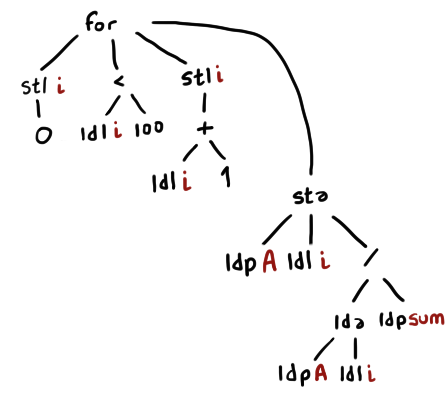 for
stl i < stl i
0 ldl i 100 +
ldl i 1
stə
ldp A ldl i /
ldə ldp sum
ldp A ldl i